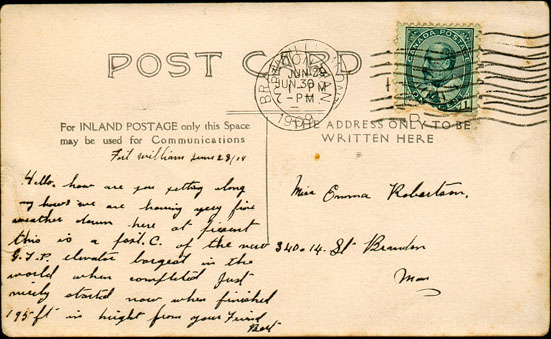 POST CARD
CANADA POSTAGE
BRANDON
JUN 29
JUN 30
PM
- PM
1909
For INLAND POSTAGE only this Space
may be used for Communications
THE ADDRESS ONLY TO BE
WRITTEN HERE
Fort William June 28/09
Hello. how are you getting along
my hows we are having very fine
weather down here at present
this is a post. C. of the new
G.T.P. elevator largest in the
world when completed Just
nicely started now when finished
195 ft in height from your Friend
Bert
Miss Emma Robertson.
340-14-St Brandon
Man